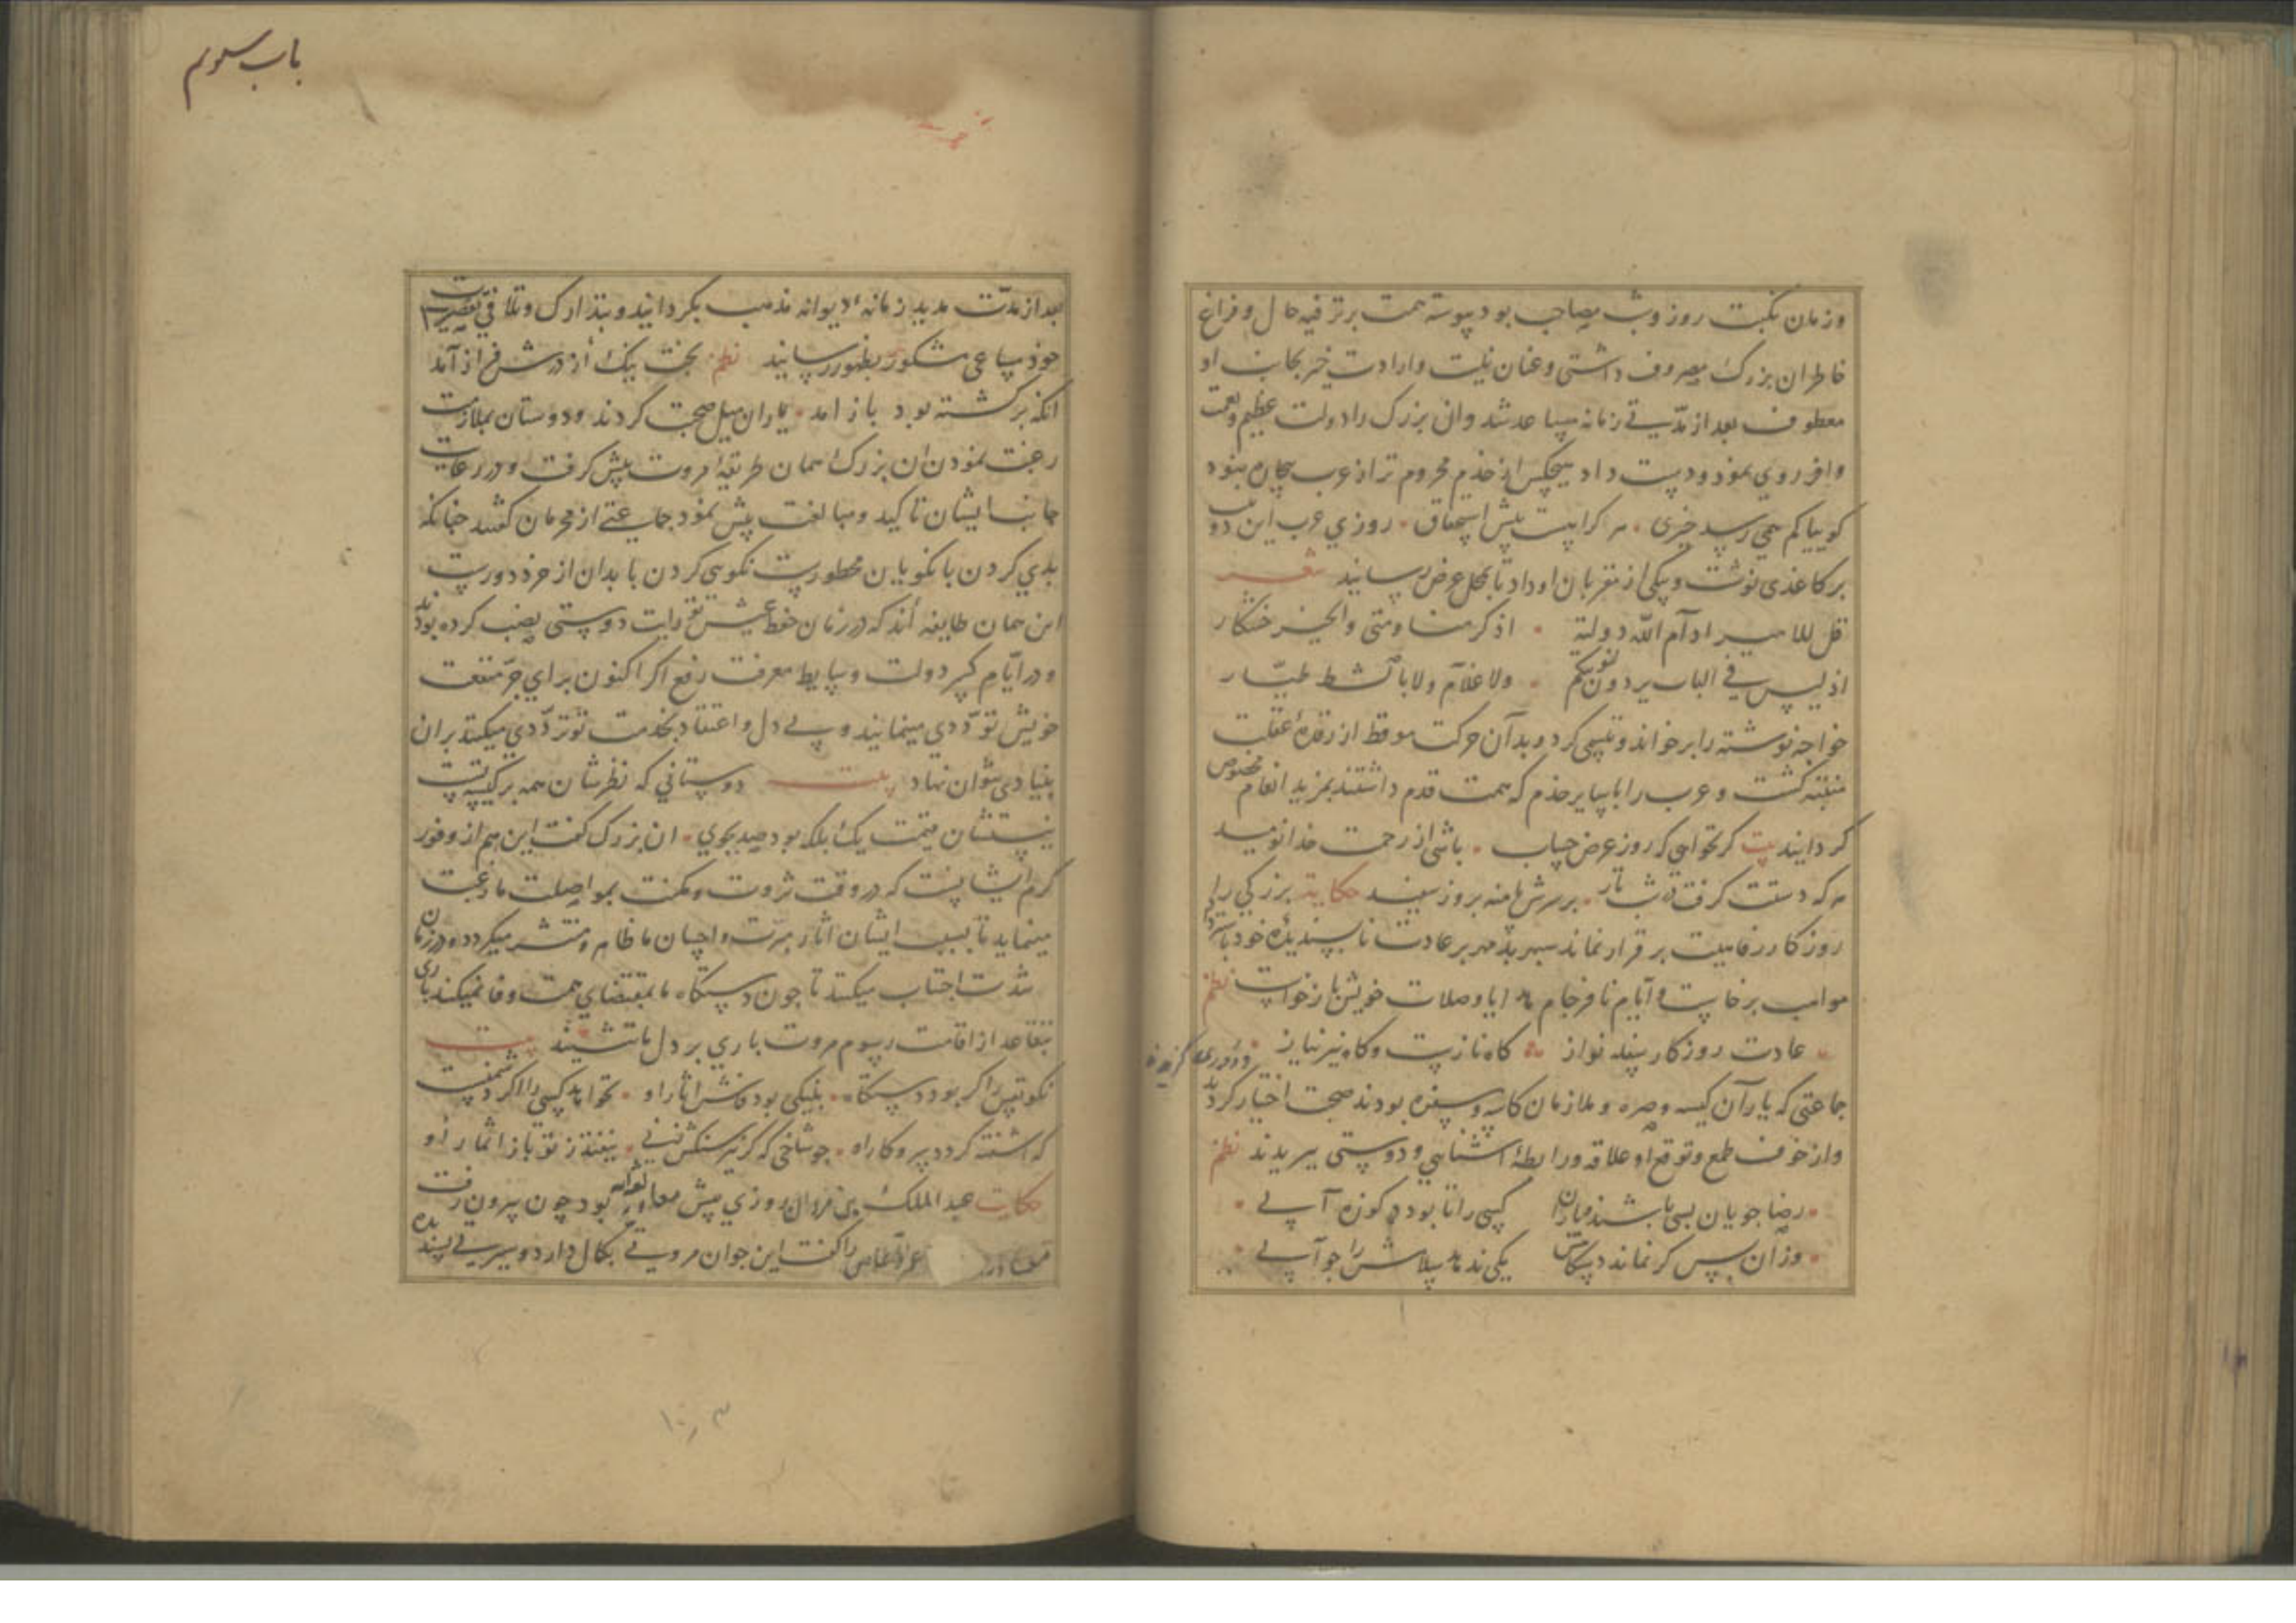 وزمان نکبت روز وشب مصاحب بود پیوسته همت بر ترفیه حال و فراغ
خاطر ان بزرک مصروف داشتی وعنان نیت وارادت خیر بجانب او
معطوف بعد از مدتی زمانه مساعد شد وان بزرک را دولت عظیم ونعمت
وافر روی نمود ودست داد هیچکس از خدم محروم تر از عرب بیچاره نبود
کوییا کم همی رسد چیزی هر کرا هست پیش استحقاق روزی عرب این دو بیت
بر کاغذی نوشت ویکی از مقربان او داد تا بمحل عرض رسانید شعر
قل للامیر ادآم الله دولته اذکر منا ومتی والخبز خشکار
اذ لیس فی الباب بردون لنوبتکم ولا غلآم ولا بالشط طیّار
خواجه نوشته را بر خواند وتبسمی کرد وبدآن حرکت موقظ از رقدهٔ غفلت
متنبه کشت و عرب را با سایر خدم که سمت قدم داشتند بمزید انعام مخصوص
کردایند بیت کر تخواهی که روز عرض حساب باشی از رحمت خدا نومید
هر که دستت کرفت در شب تار بر سرش پا منه بروز سفید حکایة بزرکی را
روزکار رفاهیت بر قرار نماند سپهر بد مهر بر عادت ناپسندیدهٔ خود باسترداد
مواهب برخاست و ایام نافرجام هدایا وصلات خویش باز خواست نظم
عادت روزکار بنده نواز کاه نازست وکاه نیز نیاز
جماعتی که یارآن کیسه وصره و ملازمان کاسه وسفره بودند صحبت اختیار کردند
واز خوف طمع وتوقع او علاقه ورابطهٔ اشنایی و دوستی ببریدند نظم
رضا جویان بسی باشند مادآن کسی را تا بود در کوزه آبی
وزآن پس کر نماند دستکاهش یکی ندهد سلامش را جوآبی
باب سوم
بعد از مدّت مدید زمانهٔ دیوانه مذهب بکردانید وبتدارک وتلافی تقصیرات
خود مساعی مشکور بظهور رسانید نظم بخت نیک از درش فراز آمد
انکه برکشته بود باز امد یاران میل صحبت کردند ودوستان بملازمت
رغبت نمودن ان بزرک همان طریقهٔ مروت پیش کرفت ودر رعایت
جانب ایشان تاکید ومبالغت پیش نمود جماعتی از محرمان کفتند چنانکه
بدی کردن با نکویان محظورست نکویی کردن با بدان از خرد دورست
این همان طایفه أند که در زمان خفظ عیش تو رایت دوستی نصب کرده بودند
ودر ایّام کسر دولت وسایط معرفت رفع اکر اکنون برای جرّ منفعت
خویش تودّدی مینمایند وبی دل واعتقاد بخدمت تو تردّدی میکنند بران
بنیادی نتوان نهاد بیت دوستانی که نظرشان همه بر کیسه تست
نیستشان قیمت یک بلکه بود صد بجوی ان بزرک کفت این هم از وفور
کرم ایشانست که در وقت ثروت ومکنت بمواصلت ما رغبت
مینماید تا بسبب ایشان اثار مبرّت واحسان ما ظاهر ومنتشر میکردد ودر زمان
شدّت اجتناب میکنند تا چون دستکاه ما بمقتضای همت وفا نمیکند باری
بتقاعد از اقامت رسوم مروت باری بر دل ما ننشیند بیت
نکو بین را کر بود دستکاه بنیکی بود فاش اثار او نخواهد کسی را اکر دشمنست
که اشفته کردد سر وکار او چو شاخی که کر سنکش زنی بیفتد ز تو باز اثمار او
حکایت عبد الملک بن مروان روزی پیش معاویه بود چون بیرون رفت
معاویه عمرو العاص را کفت این جوان مروتی بکمال دارد وسیرتی پسندیده
۱۰۳